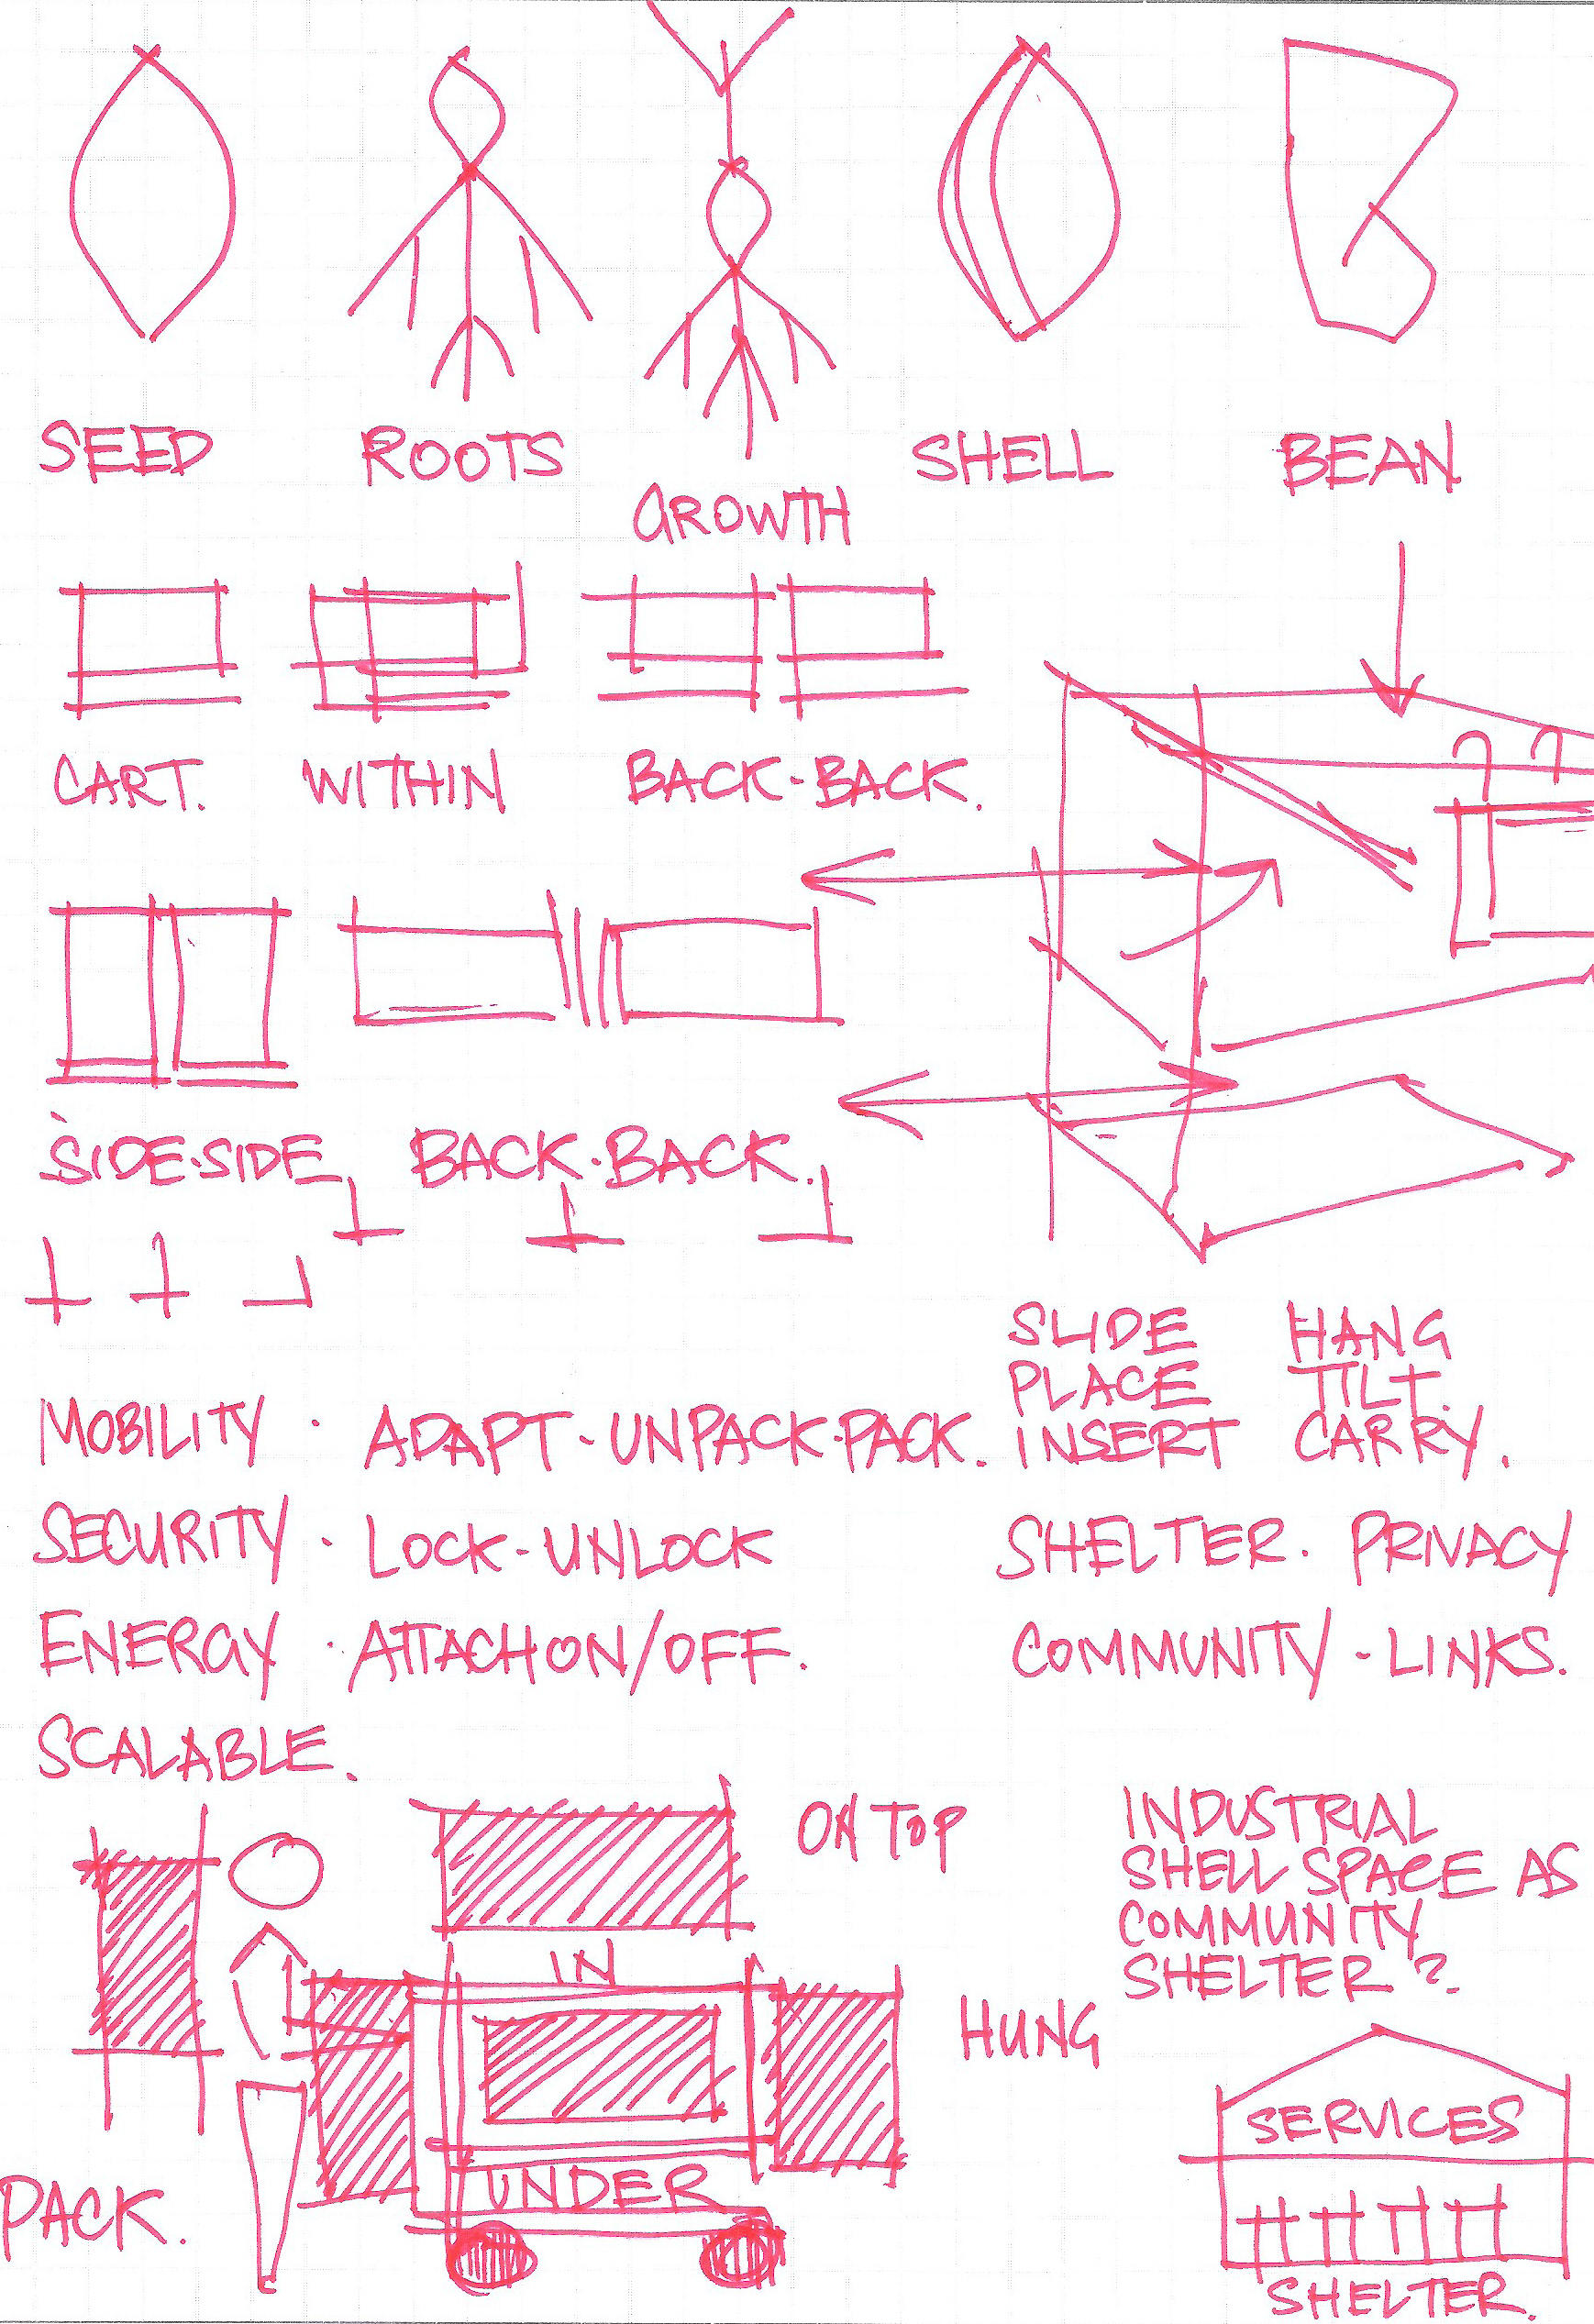 SEED ROOTS SHELL BEAN
GROWTH
CART. WITHIN BACK-BACK.
SIDE·SIDE BACK·BACK.
SLIDE HANG
PLACE TILT.
INSERT CARRY.
MOBILITY · ADAPT-UNPACK·PACK.
SECURITY · LOCK-UNLOCK
SHELTER. PRIVACY
ENERGY · ATTACH ON/OFF.
COMMUNITY - LINKS.
SCALABLE.
ON TOP
INDUSTRIAL
SHELL SPACE AS
COMMUNITY
SHELTER?
IN
HUNG
UNDER
PACK.
SERVICES
SHELTER.